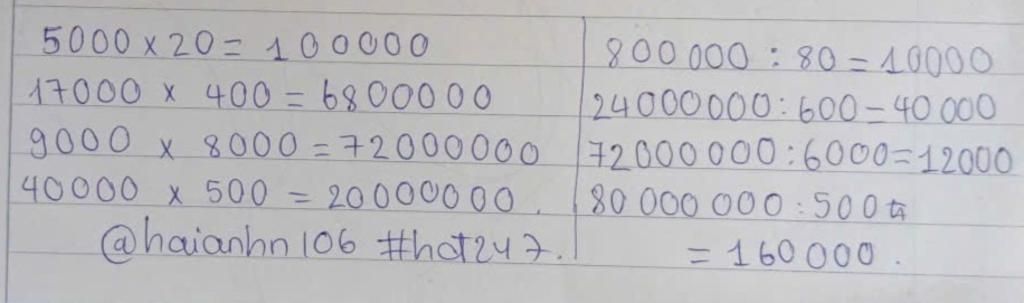 5000 x 20 = 100000
17000 x 400 = 6800000
9000 x 8000 = 72000000
40000 x 500 = 20000000.
@haianhn106 #hot247.
800000 : 80 = 10000
24000000 : 600 = 40000
72000000 : 6000 = 12000
80000000 : 500
= 160000.